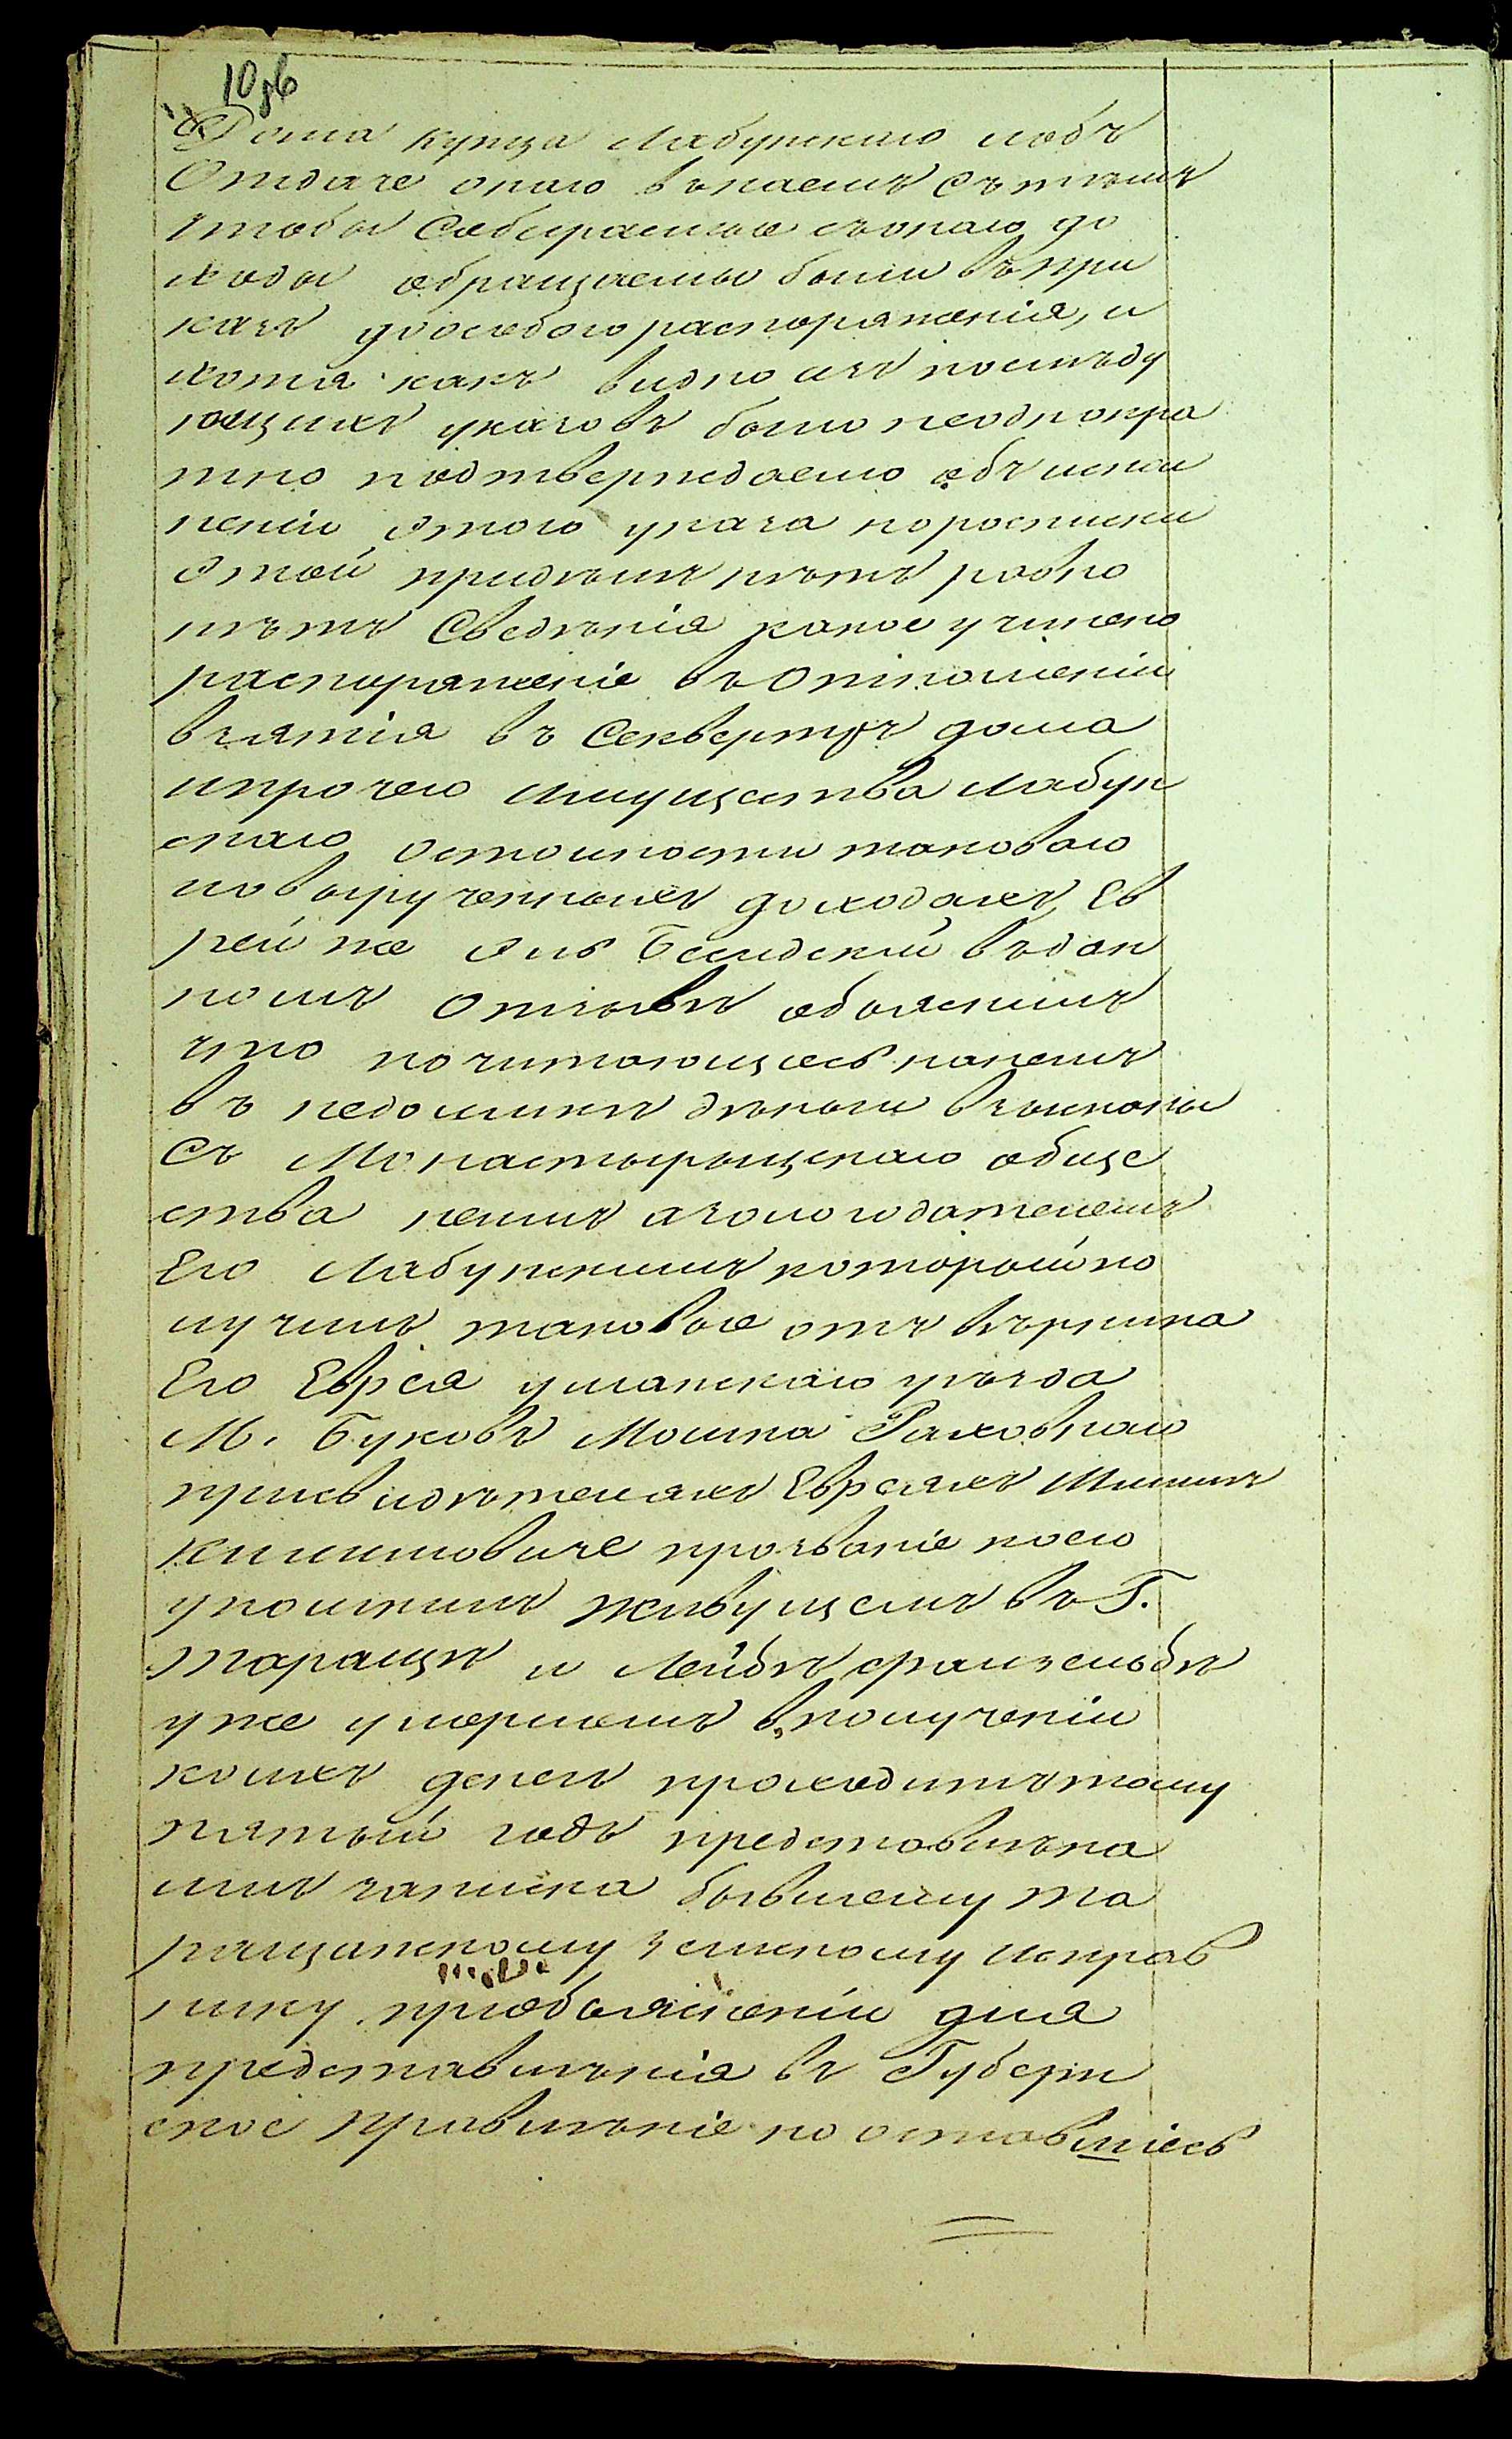 10 об
Дома купца Лабунскаго иобъ
Отдаче онаго внаемъ сътѣмъ
чтобы Собираемые съонаго до
ходы обращаемы были въпри
казъ доособого распоряженія, и
хотя какъ видно изъ послѣду
ющихъ указовъ было неоднокра
тно подтверждаемо объ испол
неніи этого указа норосписки
этой придѣлѣ нѣтъ ровно
нѣтъ Сведѣнія какое учинено
распоряженіе въ Отношеніи
взятія въ Секвертръ дома
ипрочего имущества Лабун
скаго остоимости таковаго
повырученнымъ доходахъ, Ев
рей же Эль Бсидский въдан
номъ отзывѣ объяснилъ
что почитающиесь нанемъ
въ недоимкѣ деньги взысканы
Съ Монастырищскаго обще
ства нимъ азалогодателемъ
Его Лабунскимъ которыйпо
лучилъ таковые отъ вѣрителя
Его Еврея уманскаго уѣзда
М. Буковъ Мошка Раховскаго
присвидѣтеляхъ Евреяхъ
прозваніе коего
упомнилъ живущемъ въ Г.
Таращѣ и Лейбѣ
уже умершемъ вполученіи
коихъ денегъ проходитъ тому
пятый годъ представилена
имъ записка бывшему та
ращанскому земскому исправ
нику приобъясненіи для
представленія въ Губерн
ское правленіе но оставшіесь